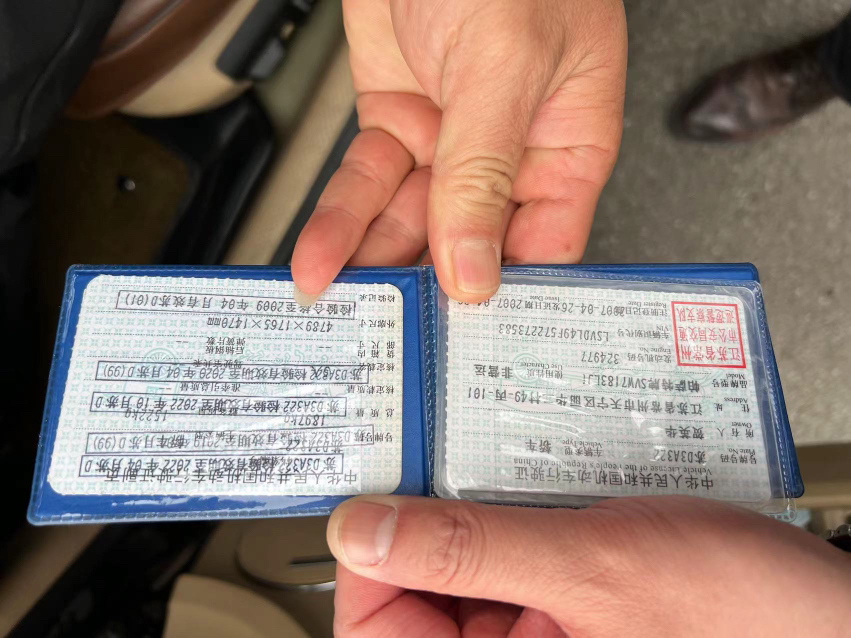 中华人民共和国机动车行驶证
Vehicle License of the People's Republic of China
号牌号码 苏D3A322 车辆类型 轿车
Plate No. Vehicle Type
所有人 贺英华
Owner
住址 江苏省常州市天宁区丽华一村49-丙-101
Address
品牌型号 帕萨特牌SVW7183LJI 使用性质 非营运
Model Use Character
发动机号码 324977
Engine No.
车辆识别代号 LSVDL49F572273583
VIN
注册登记日期 2007-04-26 发证日期 2007-04
Register Date Issue Date
江苏省常州
市公安局交通
巡逻警察支队
中华人民共和国机动车行驶证副页
苏D3A322 检验有效期至2022年04月苏D
号牌号码 苏D3A322
检验有效期至2019年04月苏D(99)
总质量 1897kg
苏D3A322 检验有效期至2022年10月苏D
核定载质量 -- 准牵引总质量 --
苏D3A322 检验有效期至2020年04月苏D(99)
货箱内部尺寸 -- 后轴钢板弹簧片数 --
外廓尺寸 4789×1765×1470mm
检验记录 检验合格至2009年04月有效苏D(01)